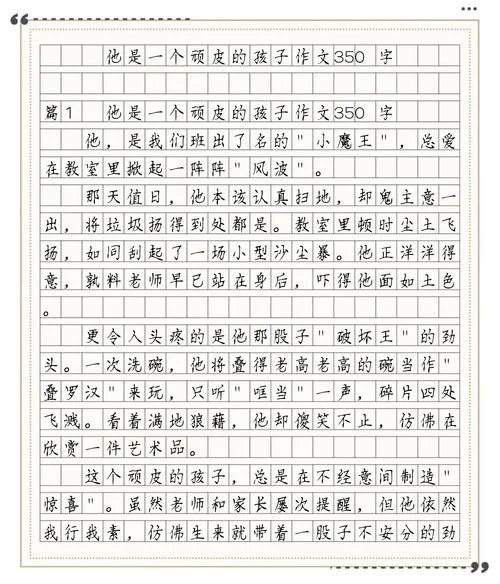 他是一个顽皮的孩子作文350 字
篇1 他是一个顽皮的孩子作文350 字
他，是我们班出了名的"小魔王"，总爱
在教室里掀起一阵阵"风波"。
那天值日，他本该认真扫地，却鬼主意一
出，将垃圾扬得到处都是。教室里顿时尘土飞
扬，如同刮起了一场小型沙尘暴。他正洋洋得
意，孰料老师早已站在身后，吓得他面如土色
。
更令人头疼的是他那股子"破坏王"的劲
头。一次洗碗，他将叠得老高老高的碗当作"
叠罗汉"来玩，只听"哐当"一声，碎片四处
飞溅。看着满地狼藉，他却傻笑不止，仿佛在
欣赏一件艺术品。
这个顽皮的孩子，总是在不经意间制造"
惊喜"。虽然老师和家长屡次提醒，但他依然
我行我素，仿佛生来就带着一股子不安分的劲